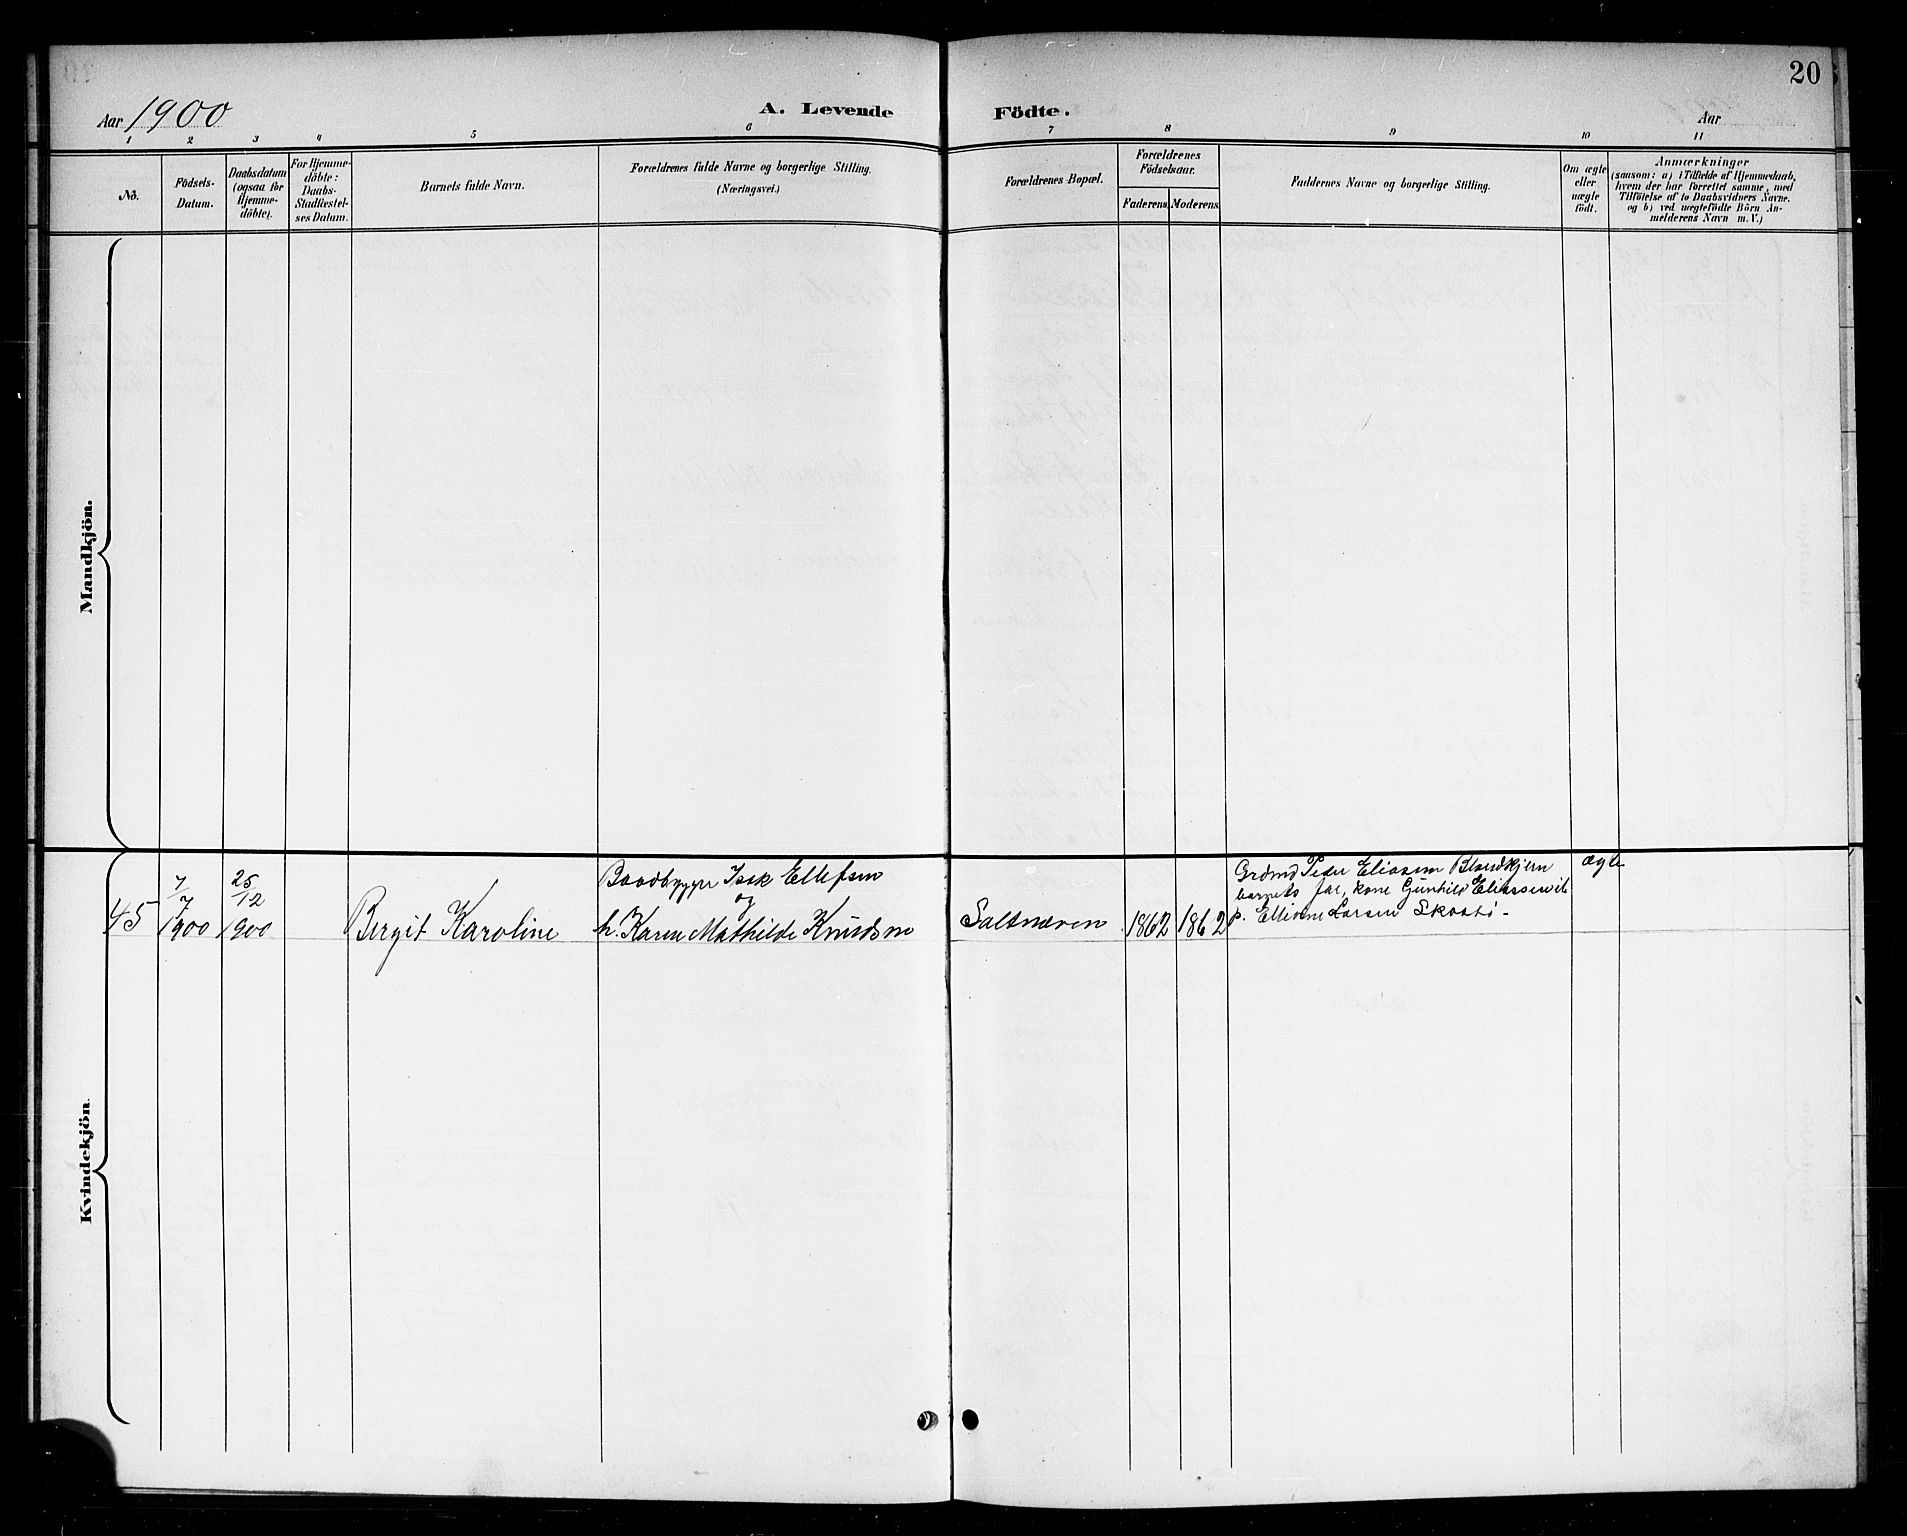 20
Aar 1900
A. Levende Födte.
Aar
1 2 3 4 5 6 7 8 9 10 11
No.
Födsels-
Datum.
Daabsdatum
(ogsaa for
Hjemme-
döbte).
For Hjemme-
döbte:
Daabs-
Stadfæstel-
ses Datum.
Barnets fulde Navn.
Forældrenes fulde Navne og borgerlige Stilling.
(Næringsvei.)
Forældrenes Bopæl.
Forældrenes
Födselsaar.
Faderens. Moderens.
Faddernes Navne og borgerlige Stilling.
Om ægte
eller
uægte
födt.
Anmærkninger
(saasom: a) i Tilfælde af Hjemmedaab,
hvem der har forrettet samme, med
Tilföielse af to Daabsvidners Navne.
og b) ved uægtefödte Börn An-
melderens Navn m. V.)
Mandkjön.
Kvindekjön.
45
7/7
1900
25/12
1900
Bergit Karoline
Baadbygger Isak Ellefsen
og
h. Karen Mathilde Knudsen
Saltnæven
1862
1862
Grdmd Peder Eliasen
barnets far, kone Gunhild
p. Elliene Larsen Skaatø-
ægte